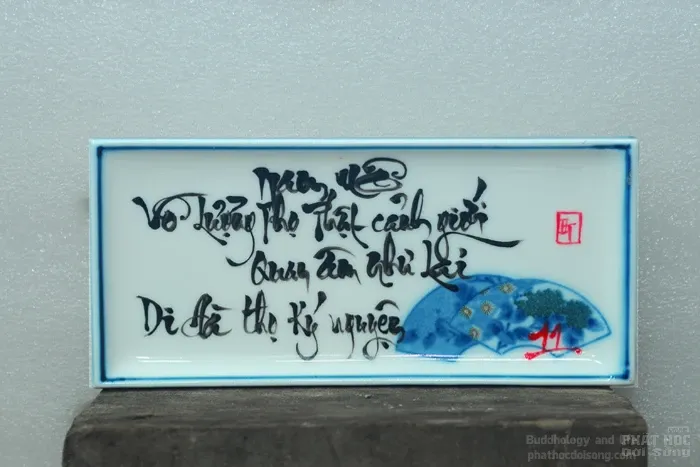 Nam mô
Vô Lượng Thọ Thật cảnh giới
Quan Âm Như Lai
Di Đà thọ ký nguyện
11
Buddhology and
phathocdoisong.com
PHAT HOC
ĐỜI SỐNG